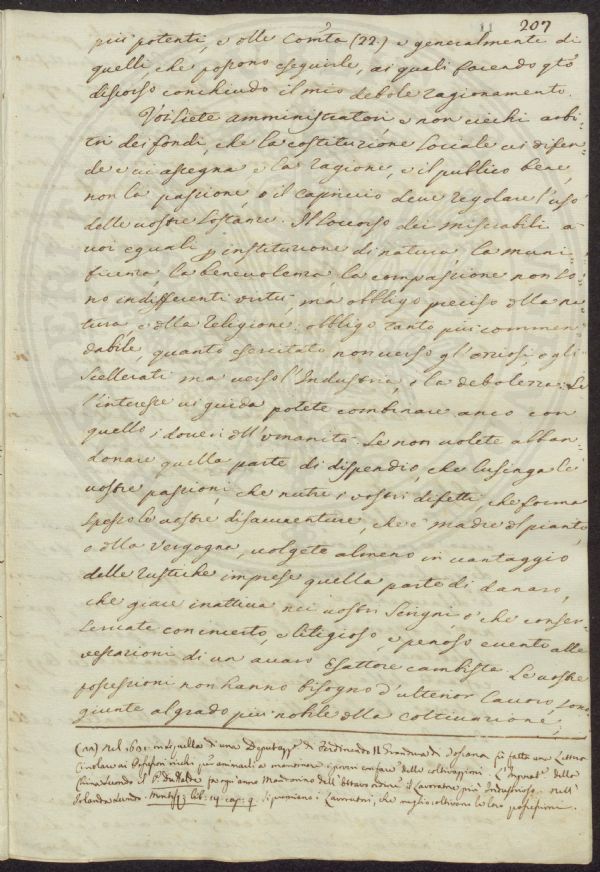 207
più potenti, e alle Comtà (22.) e generalmente di
quelli, che possono eseguirle, ai quali facendo qto
discorso conchiudo il mio debole ragionamento.
Voi siete amministratori e non ciechi arbi-
tri dei fondi, che la costituzione sociale vi difen-
de e vi assegna e la ragione, e il publico bene,
non la passione, o il capriccio deve regolare l'uso
delle vostre sostanze. Il soccorso dei miserabili a
voi eguali p instituzione di natura, la muni-
ficenza, la benevolenza la compassione non so-
no indifferenti virtù, ma obbligo preciso dlla na-
tura, e dlla religione: obbligo tanto più commen-
dabile, quanto esercitato non verso gl'oziosi, e gli
scellerati ma verso l'Industria, e la debolezza. Se
l'interesse vi guida potete combinare anco con
quello i doveri dll'umanità. Se non volete abban-
donare quella parte di dispendio, che lusinga le
vostre passioni, che nutre i vostri difetti, che forma
spesso le vostre disavventure, che è madre dl pianto,
e dlla vergogna, volgete almeno in vantaggio
delle rustiche imprese quella parte di danaro,
che giace inattiva nei vostri scrigni, o che conser-
vate con incerto, e litigioso, e penoso evento alle
vessazioni di un avaro Esattore cambista. Le vostre
possessioni non hanno bisogno d'ulterior lavoro, son
giunte al grado più nobile dlla coltivazione;
Nel di una di Ferdinando II Granduca di Toscana fù fatta una Lettera
Circolare ai Possessori ricchi p animarli a mantenere i poveri con fare delle coltivazioni. L'Imperatr dlla
China secondo il P. Du Halde fa ogni anno Mandarino dell'ottavo ordine il Lavoratore più Industrioso. Nell'
Irlanda secondo Montesq: lib: 14 cap: 9. si premiano i Lavoratori, che meglio coltivano le loro possessioni.